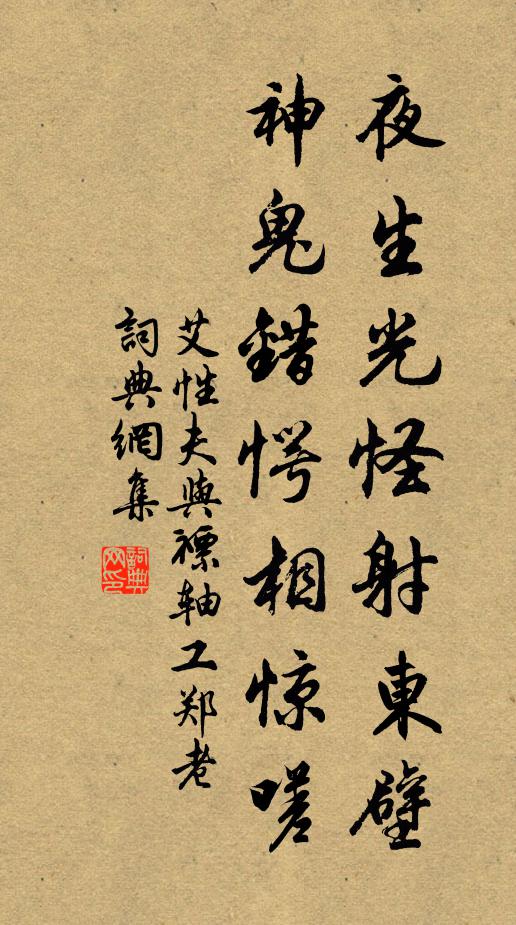 夜生光怪射東壁
神鬼錯愕相惊嗟
艾性夫與褾軸工郑老
詞典網集
詞典网印